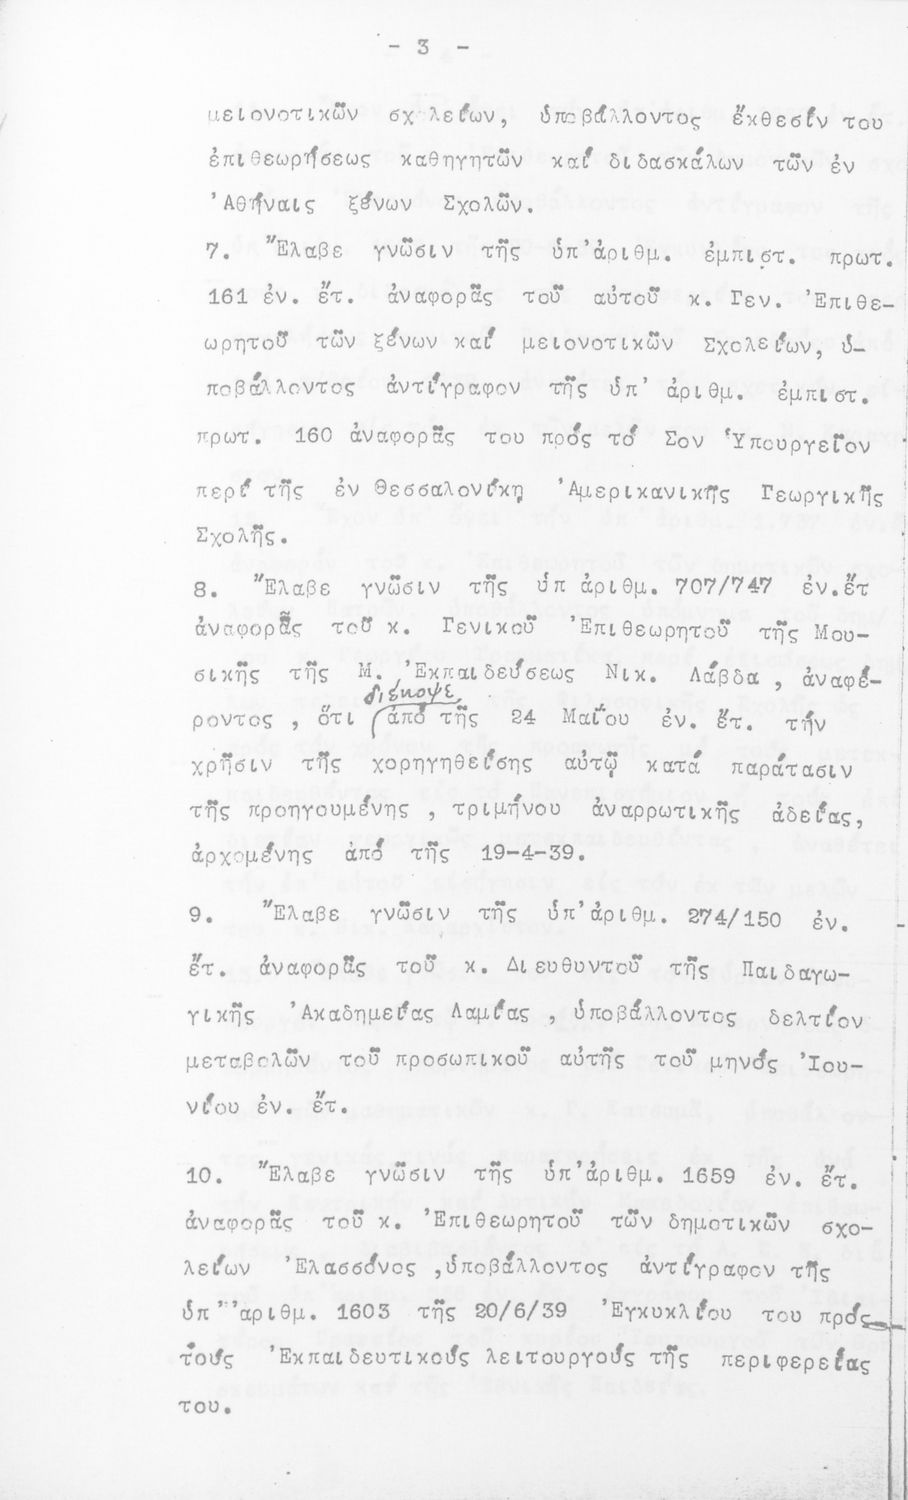 - 3 -
μειονοτικῶν σχολείων, ὑποβάλλοντος ἔκθεσίν του
ἐπιθεωρήσεως καθηγητῶν καί διδασκάλων τῶν ἐν
'Αθήναις ξένων Σχολῶν.
7. Ἔλαβε γνῶσιν τῆς ὑπ'ἀριθμ. ἐμπιστ. πρωτ.
161 ἐν. ἔτ. ἀναφορᾶς τοῦ αὐτοῦ κ. Γεν. Ἐπιθε-
ωρητοῦ τῶν ξένων καί μειονοτικῶν Σχολείων, ὑ-
ποβάλλοντος ἀντίγραφον τῆς ὑπ' ἀριθμ. ἐμπιστ.
πρωτ. 160 ἀναφορᾶς του πρός τό Σον Ὑπουργεῖον
περί τῆς ἐν Θεσσαλονίκῃ Ἀμερικανικῆς Γεωργικῆς
Σχολῆς.
8. Ἔλαβε γνῶσιν τῆς ὑπ ἀριθμ. 707/747 ἐν.ἔτ
ἀναφορᾶς τοῦ κ. Γενικοῦ Ἐπιθεωρητοῦ τῆς Μου-
σικῆς τῆς Μ. Ἐκπαιδεύσεως Νικ. Λάβδα , ἀναφέ-
διέκοψε
ροντος , ὅτι ἀπό τῆς 24 Μαΐου ἐν. ἔτ. τήν
χρῆσιν τῆς χορηγηθείσης αὐτῷ κατά παράτασιν
τῆς προηγουμένης , τριμήνου ἀναρρωτικῆς ἀδείας,
ἀρχομένης ἀπό τῆς 19-4-39.
9. Ἔλαβε γνῶσιν τῆς ὑπ'ἀριθμ. 274/150 ἐν.
ἔτ. ἀναφορᾶς τοῦ κ. Διευθυντοῦ τῆς Παιδαγω-
γικῆς Ἀκαδημείας Λαμίας , ὑποβάλλοντος δελτίον
μεταβολῶν τοῦ προσωπικοῦ αὐτῆς τοῦ μηνός Ἰου-
νίου ἐν. ἔτ.
10. Ἔλαβε γνῶσιν τῆς ὑπ'ἀριθμ. 1659 ἐν. ἔτ.
ἀναφορᾶς τοῦ κ. Ἐπιθεωρητοῦ τῶν δημοτικῶν σχο-
λείων Ἐλασσόνος ,ὑποβάλλοντος ἀντίγραφον τῆς
ὑπ''ἀριθμ. 1603 τῆς 20/6/39 Ἐγκυκλίου του πρός
τούς Ἐκπαιδευτικούς λειτουργούς τῆς περιφερείας
του.